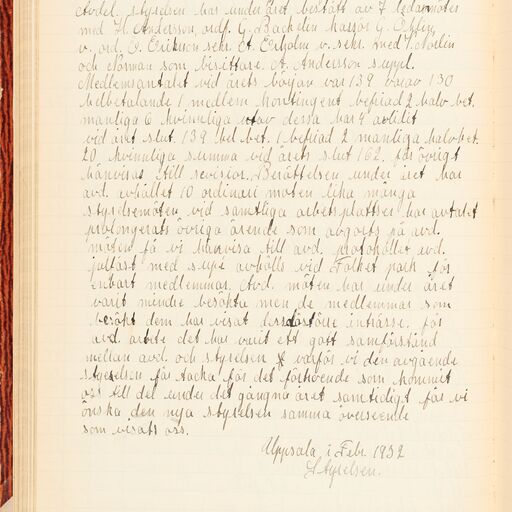 Avdel. styrelsen har under året bestått av 7 ledamöter
med H. Andersson, ordf. G. Bäckelin kassör G. Ohlin
v. ord. O. Erikson sekr. E. v. sekr. med
och Norman som bisittare. A. Andersson suppl.
Medlemsantalet vid årets början var 139 varav 130
helbetalande 1 medlem kontingent befriad 2 halv bet.
manliga 6 kvinnliga utav dessa har 4 avlidit
vid året slut. 139 hel bet. 1 befriad 2 manliga halv bet.
20 kvinnliga summa vid årets slut 162. för övrigt
hänvisas till revision. Berättelsen under året har
avd. avhållet 10 ordinari möten lika många
styrelsemöten vid samtliga arbetsplattser har avtalet
prolongerats övriga ärende som avgorts på avd.
möten få vi hänvisa till avd. protokollet avd.
julfäst med supé avhölls vid Folket park för
enbart medlemmar. Avd. möten har under året
varit mindre besökta men de medlemmar som
besökt dem har visat dess större intrásse för
avd. arbete det har varit ett gott samförstånd
mellan avd. och styrelsen varför vi den avgående
styrelsen får tacka för det förtroende som kommit
oss till del under det gångna året samtidigt får vi
önska den nya styrelsen samma överseende
som visats oss.
Uppsala i Febr. 1932
Styrelsen.